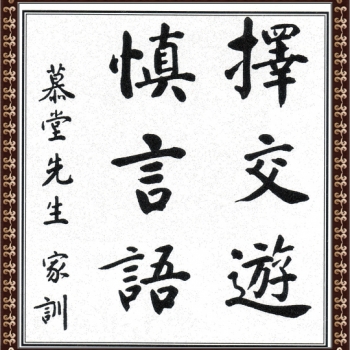 擇交遊
慎言語
慕堂先生 家訓